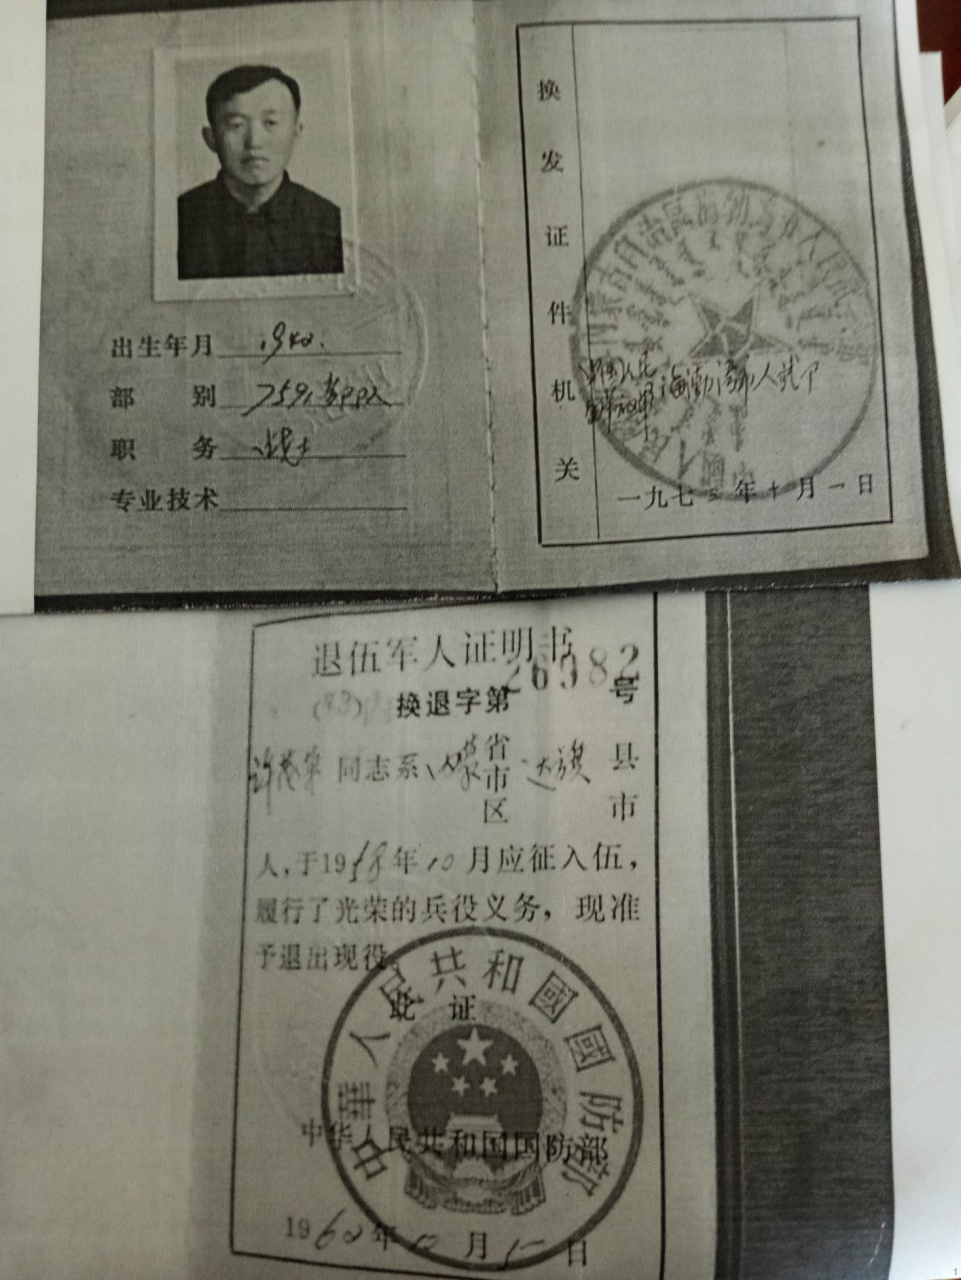 出生年月 1940.
部别 7591部队
职务 战士
专业技术
换发证件机关
内蒙古自治区海勃湾市人民
中国人民
解放军海勃湾市人武部
一九七三年十月一日
退伍军人证明书
换退字第26982号
同志系内蒙省市区达旗县市
人,于1958年10月应征入伍,
履行了光荣的兵役义务,现准
予退出现役。
此证
中华人民共和国国防部
中華人民共和國國防部
1960年10月 日